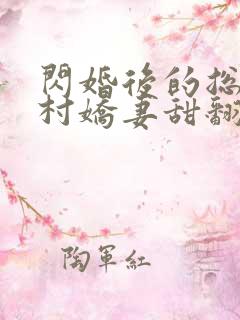 閃婚後的總
村嬌妻甜翻
陶軍紅